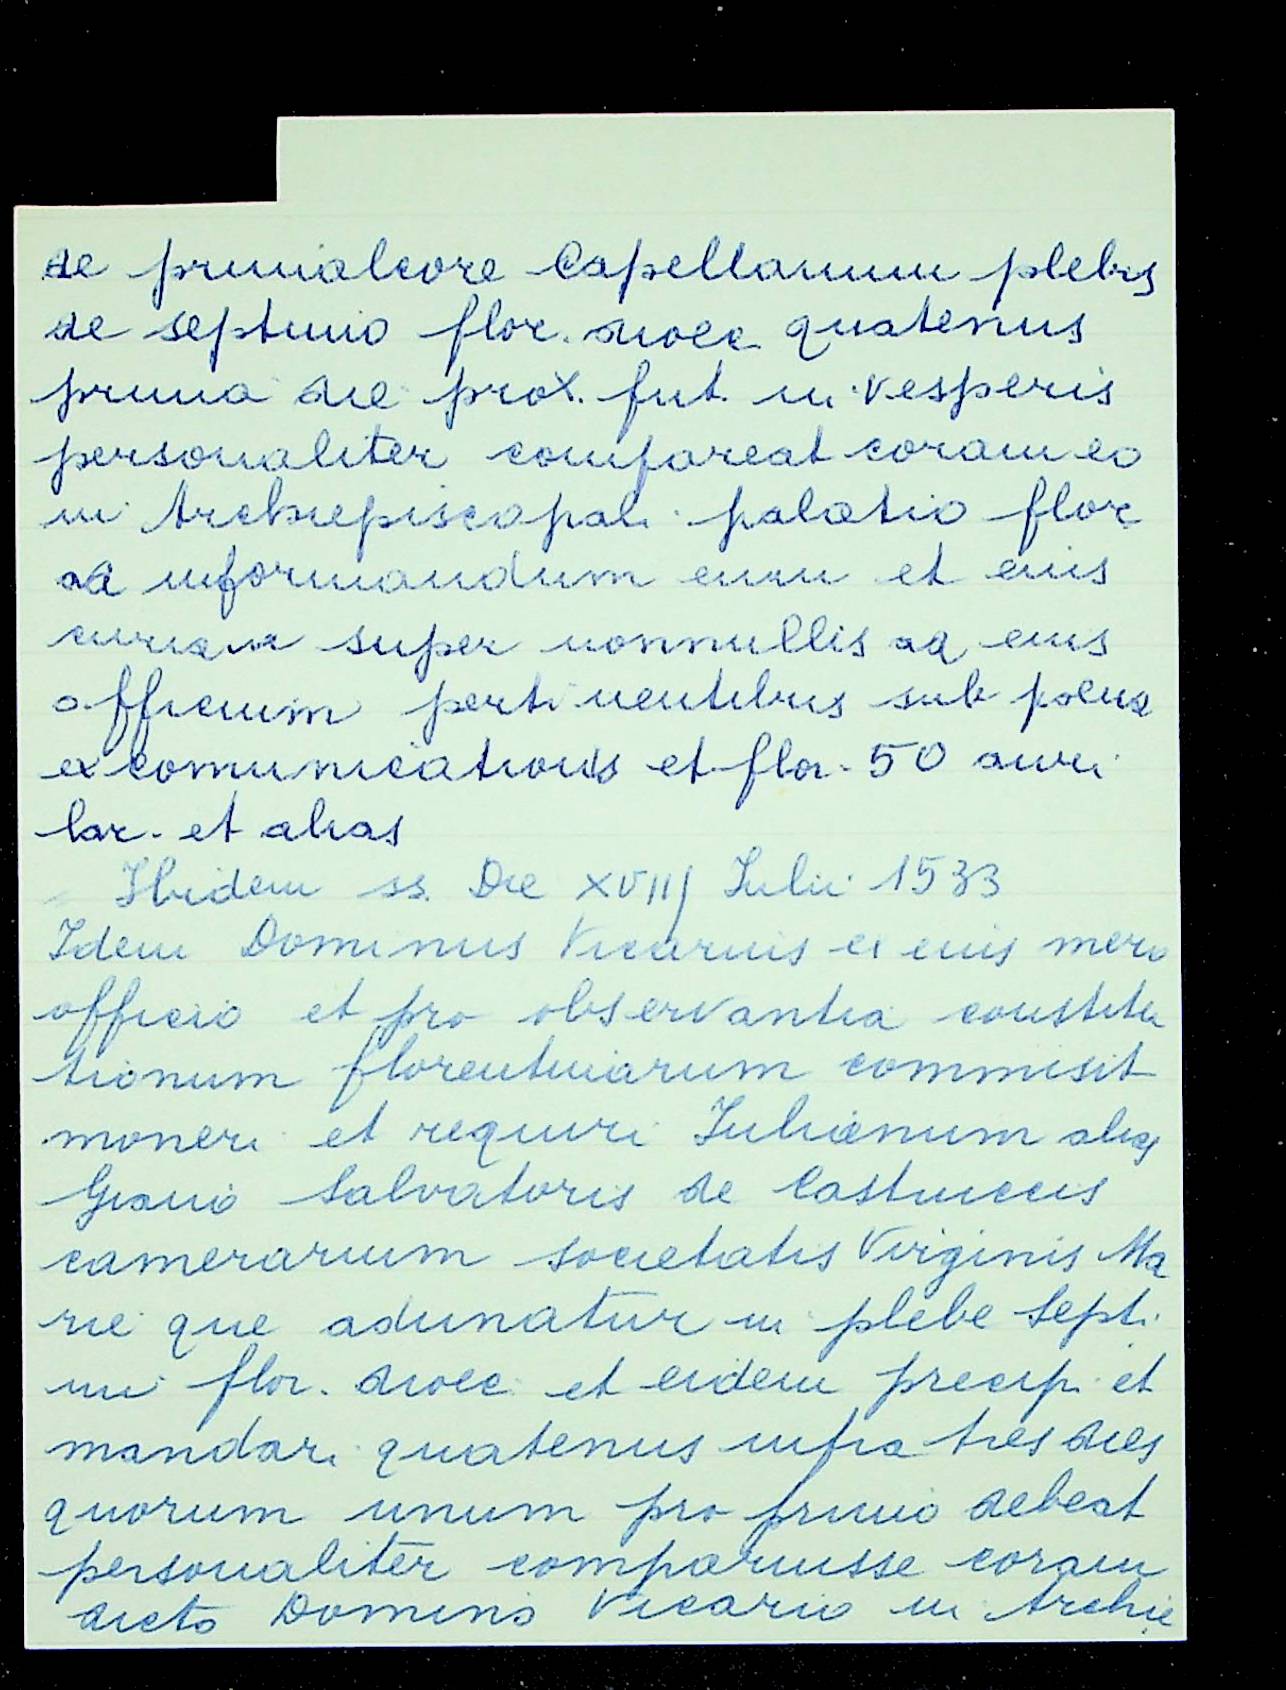 de primalcore Capellanum plebis
de septimo flor. dioec quatenus
prima die prox. fut. in vesperis
personaliter compareat coram eo
in Archiepiscopali palatio flor
ad informandum eum et eius
curiam super nonnullis ad eius
officium pertinentibus sub poena
excomunicationis et flor. 50 auri
lar. et alias
Ibidem ss. Die XVIIJ Iulii 1533
Idem Dominus Vicarius ex eius mero
officio et pro observantia constitu
tionum florentinarum commisit
moneri et requiri Iulianum alias
Giano Salvatoris de Castruccis
camerarium societatis Virginis Ma
rie que adunatur in plebe Septi
mi flor. dioec et eidem precip. et
mandari quatenus infra tres dies
quorum unum pro primo debeat
personaliter comparuisse coram
dicto Domino Vicario in Archie